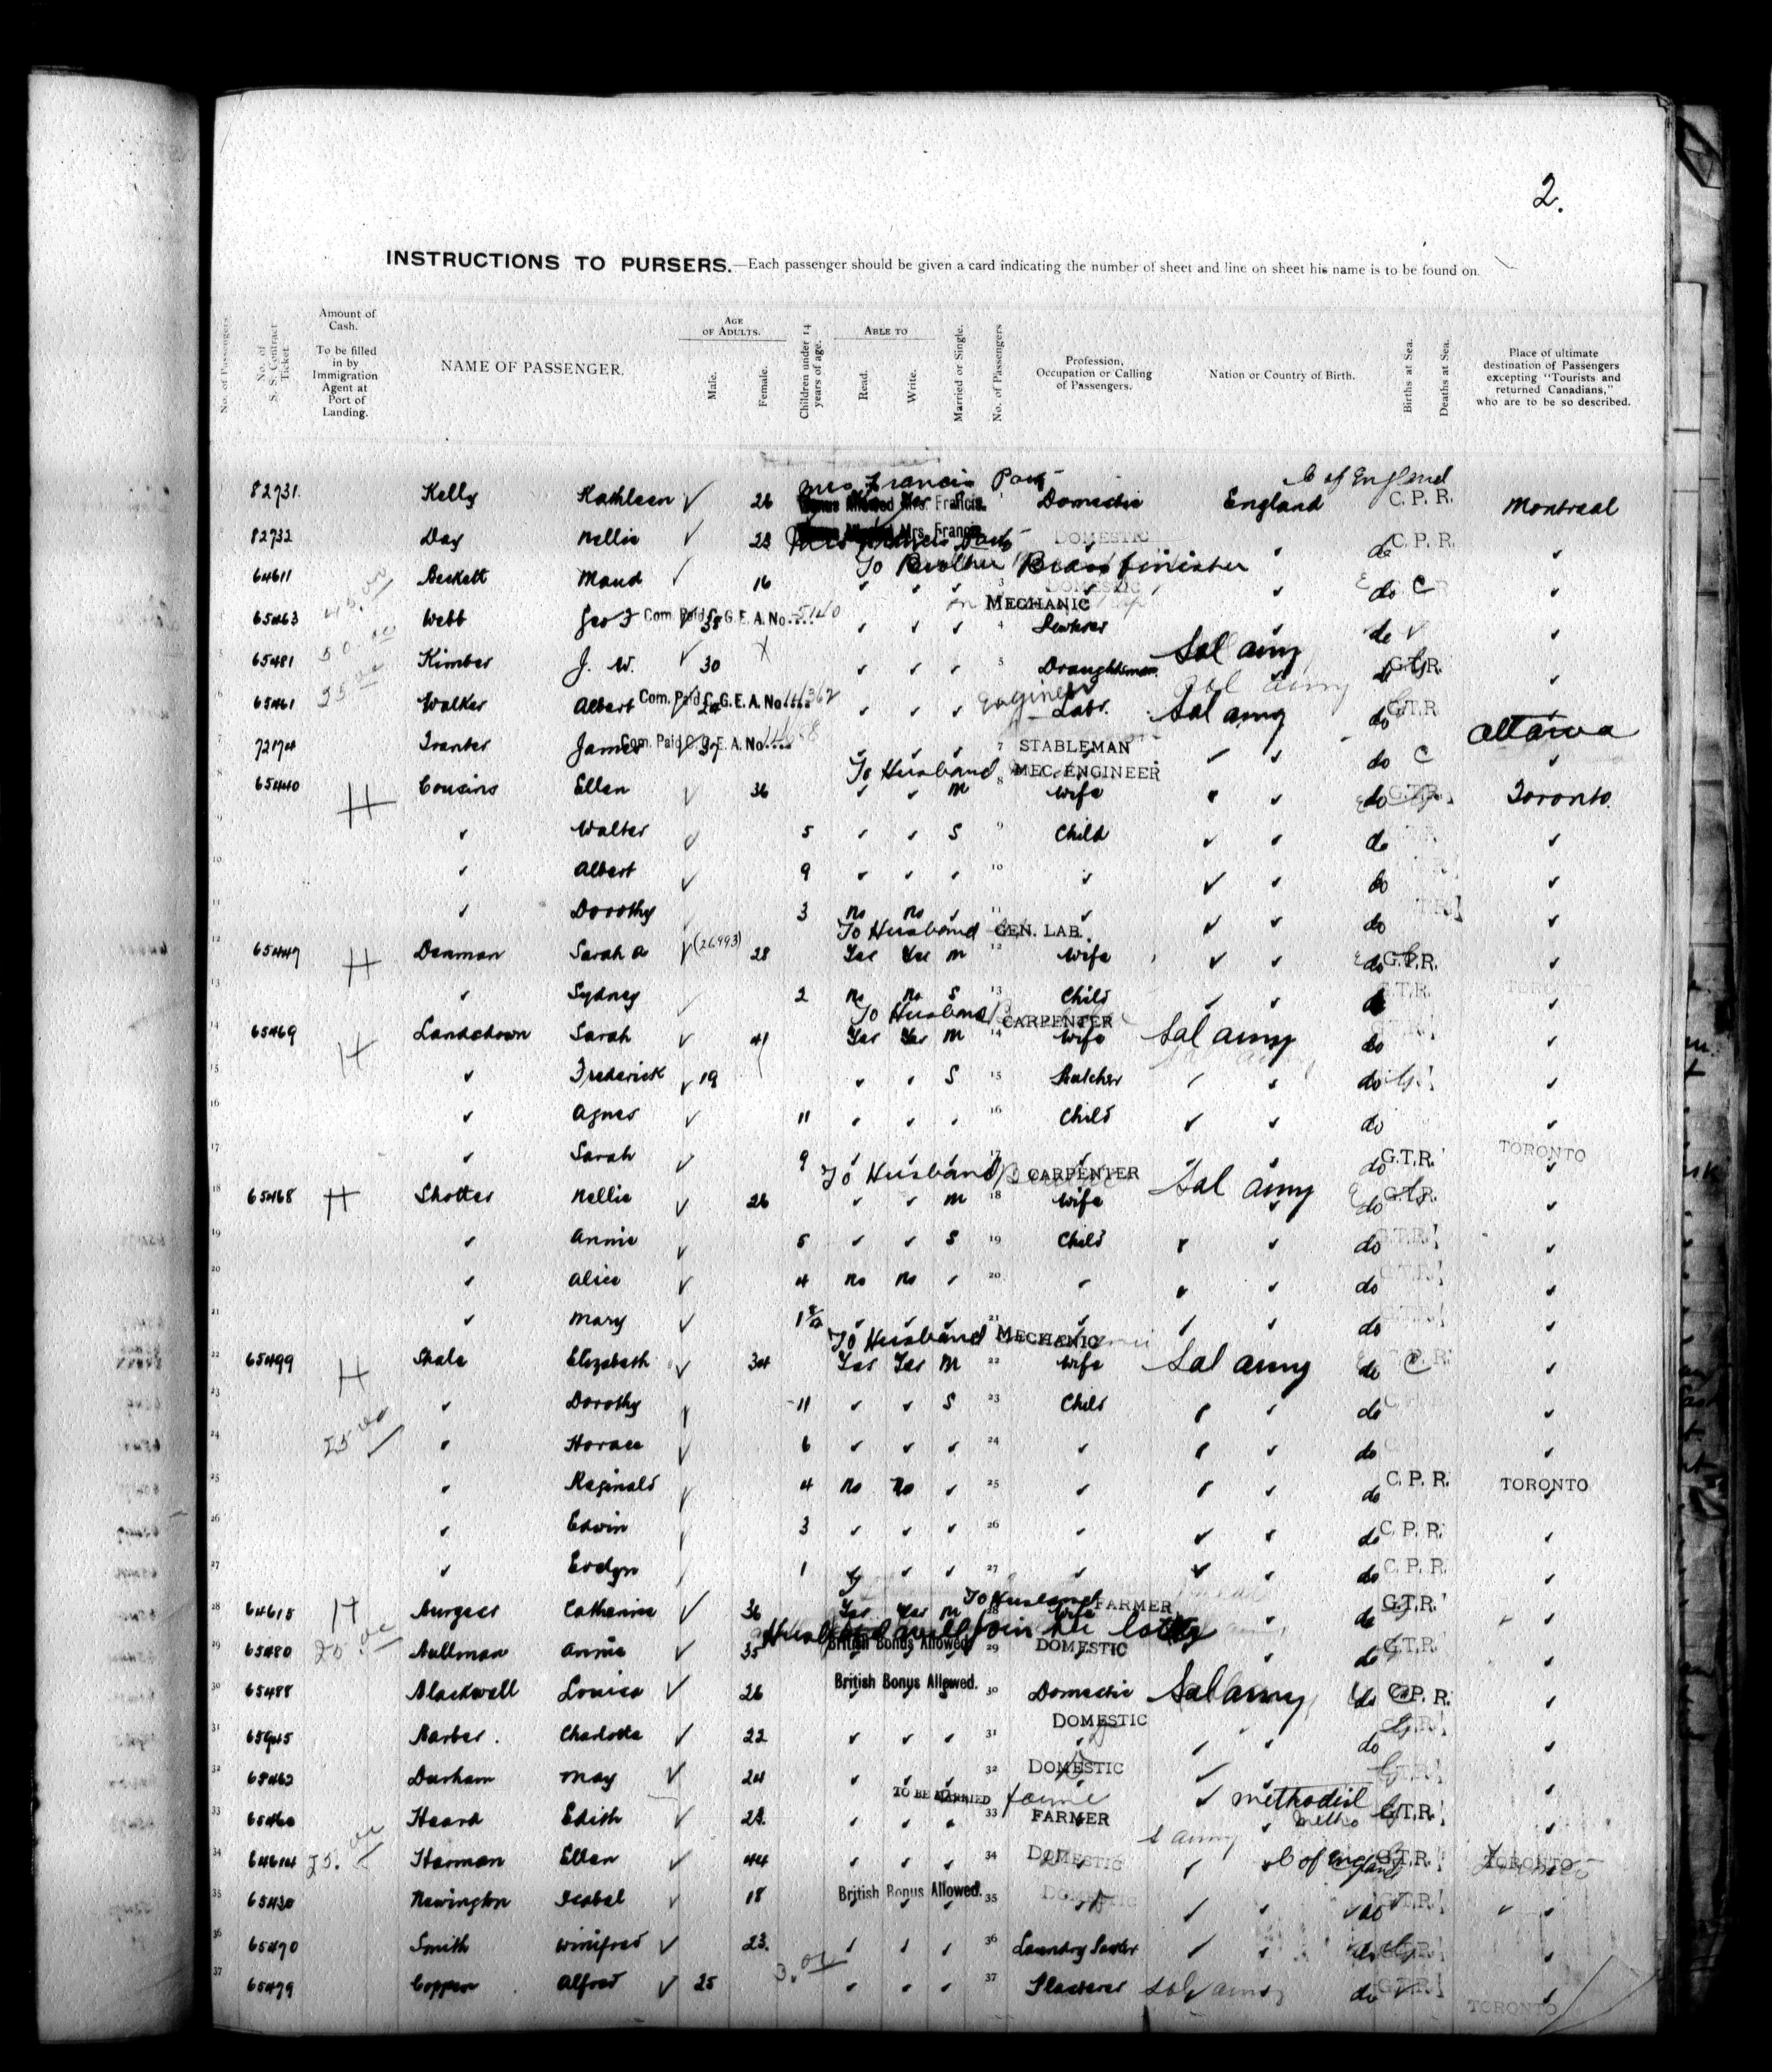 2.
INSTRUCTIONS TO PURSERS.—Each passenger should be given a card indicating the number of sheet and line on sheet his name is to be found on.
No. of Passengers
No. of S. S. Contract Ticket
Amount of Cash. To be filled in by Immigration Agent at Port of Landing.
NAME OF PASSENGER.
AGE OF ADULTS.
Male.
Female.
Children under 14 years of age.
ABLE TO
Read.
Write.
Married or Single.
No. of Passengers
Profession, Occupation or Calling of Passengers.
Nation or Country of Birth.
Births at Sea.
Deaths at Sea.
Place of ultimate destination of Passengers excepting "Tourists and returned Canadians," who are to be so described.
Mrs Francis Party C of England
82731 Kelly Kathleen ✓ 26 Mrs. Francis. 1 Domestic England C. P. R. Montreal
82732 Day Nellie ✓ 23 Mrs. Francis DOMESTIC do C. P. R.
To Brother Brass finisher
64611 45.00 Beckett Maud ✓ 16 3 DOMESTIC do C
MECHANIC
65463 50.00 Webb Geo F Com. Paid C. G. E. A. No. 5140 38 4 do
65481 25.00 Kimber J. W. ✓ 30 5 Draughtsman Sal army do G.T.R.
Engineer
65461 Walker Albert Com. Paid C. G. E. A. No. 24 Labr. Sal army do G.T.R.
Ottawa
72174 7 Tranter James Com. Paid C. G. E. A. No. 37 7 STABLEMAN do C
To Husband MEC. ENGINEER
65440 8 H Cousins Ellen ✓ 36 M 8 Wife do G.T.R. Toronto.
9 Walter ✓ 5 S 9 Child do
10 Albert ✓ 9 10 do
11 Dorothy 3 No No 11 do
To Husband GEN. LAB.
65447 12 H Denman Sarah A ✓ (26993) 28 Yes Yes M 12 Wife do G.T.R.
13 Sydney 2 No No S 13 Child G.T.R. TORONTO
To Husband CARPENTER
65469 14 H Lansdown Sarah ✓ 41 Yes Yes M 14 Wife Sal army do
15 Frederick ✓ 19 S 15 Butcher do
16 Agnes ✓ 11 16 Child do
17 Sarah ✓ 9 17 do G.T.R. TORONTO
To Husband CARPENTER
65468 18 H Shotter Nellie ✓ 26 M 18 Wife Sal army do G.T.R.
19 Annie ✓ 5 S 19 Child do G.T.R.
20 Alice ✓ 4 No No 20 do G.T.R.
21 Mary ✓ 21 do G.T.R.
To Husband MECHANIC
65499 22 H Elizabeth ✓ 34 Yes Yes M 22 Wife Sal army do C
23 Dorothy 11 S 23 Child do
24 25.00 Horace ✓ 6 24 do
25 Reginald ✓ 4 No No 25 do C. P. R. TORONTO
26 Edwin 3 26 do C. P. R.
27 Evelyn 1 27 do C. P. R.
To Husband FARMER
64615 28 H Burgess Catherine ✓ 36 Yes Yes M 28 Wife do G.T.R.
Husband will join her later
65480 29 20.00 Bullman Annie ✓ 35 British Bonus Allowed. 29 DOMESTIC do G.T.R.
65488 30 Blackwell Louisa ✓ 26 British Bonus Allowed. 30 Domestic Sal army do C. P. R.
DOMESTIC
31 Barber. Charlotte ✓ 22 31 do
65462 32 Durham May ✓ 24 32 DOMESTIC G.T.R.
TO BE MARRIED Methodist
65460 33 Heard Edith ✓ 33 FARMER Metho G.T.R.
S army
64614 34 25. Harman Ellen ✓ 44 34 DOMESTIC C of England G.T.R. TORONTO
65430 35 Newington Isabel ✓ 18 British Bonus Allowed. 35 DOMESTIC do G.T.R.
65470 36 Smith Winifred ✓ 23. 36 do G.T.R.
65479 37 Alfred ✓ 25 37 Plasterer Sal army do G.T.R.
TORONTO